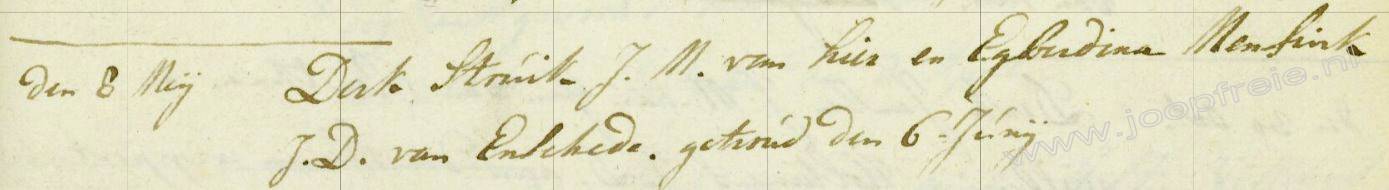 den 8 Meij Derk Struik J. M. van hier en Egberdina Mensink
J. D. van Enschede. getroud den 6 Junij
www.joopfreie.nl